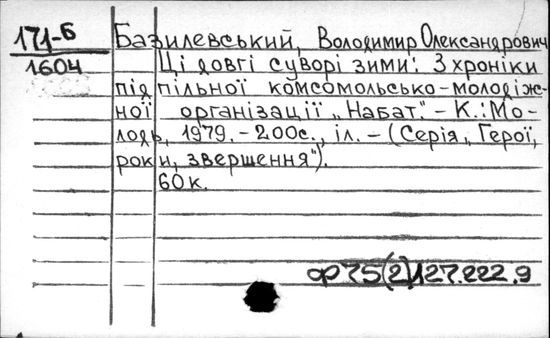 171-Б Базилевський, Володимир Олександрович
1604 Ці довгі суворі зими: З хроніки
підпільної комсомольсько-молодіж-
ної організації „Набат.“ - К.: Мо-
лодь, 1979. - 200с., іл. - (Серія „Герої,
роки, звершення“).
60к.
Ф75(2)127.222.9